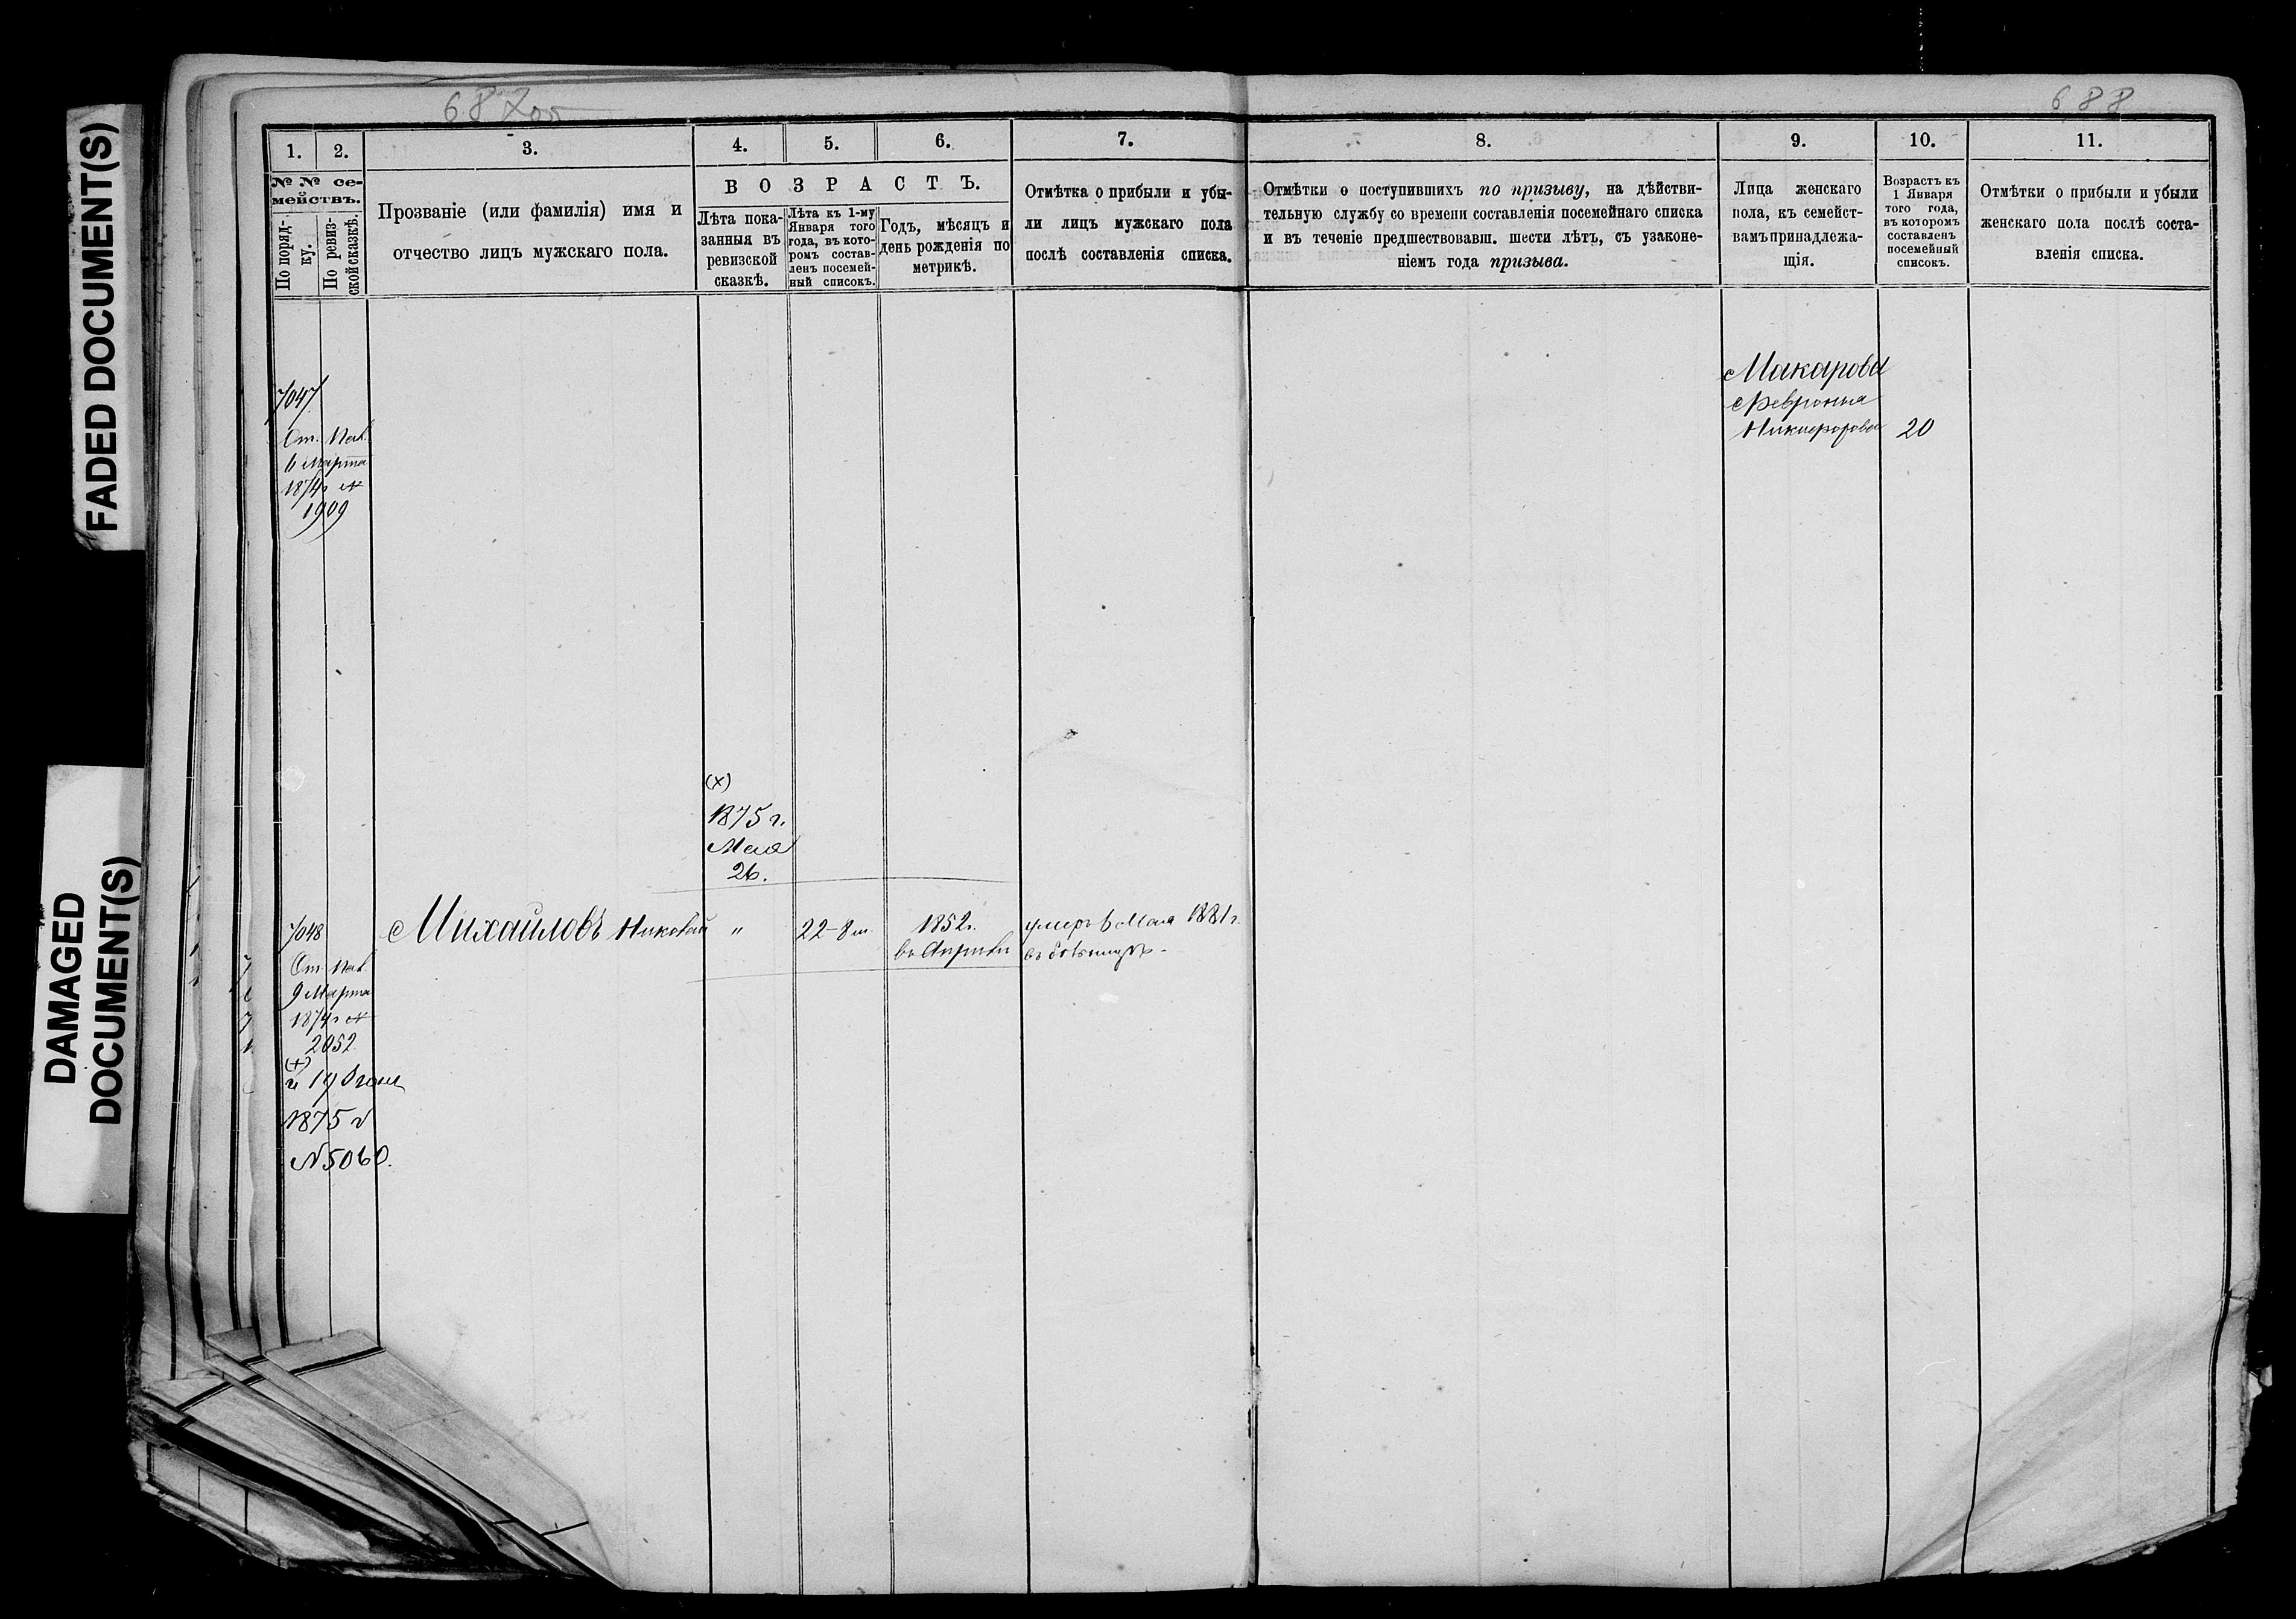 FADED DOCUMENT(S)
DAMAGED
DOCUMENT(S)
687об
688
1.
2.
3.
4.
5.
6.
7.
8.
9.
10.
11.
№ № се-
мействъ.
По поряд-
ку.
По ревиз-
ской сказкѣ.
Прозваніе (или фамилія) имя и
отчество лицъ мужскаго пола.
ВОЗРАСТЪ.
Лѣта пока-
занныя въ
ревизской
сказкѣ.
Лѣта къ 1-му
Января того
года, въ кото-
ромъ состав-
ленъ посемей-
ный списокъ.
Годъ, мѣсяцъ и
день рожденія по
метрикѣ.
Отмѣтка о прибыли и убы-
ли лицъ мужскаго пола
послѣ составленія списка.
Отмѣтки о поступившихъ по призыву, на дѣйстви-
тельную службу со времени составленія посемейнаго списка
и въ теченіе предшествовавш. шести лѣтъ, съ узаконе-
ніемъ года призыва.
Лица женскаго
пола, къ семейст-
вамъ принадлежа-
щія.
Возрастъ къ
1 Января
того года,
въ которомъ
составленъ
посемейный
списокъ.
Отмѣтки о прибыли и убыли
женскаго пола послѣ соста-
вленія списка.
7047
6 Марта
1874 г №
1909
Макарова
Феврония
Никифорова 20
(х)
1875 г.
Мая
26.
7048 Михайловъ Николай " 22-8 м. 1852 г. умеръ 6 Мая 1881 г.
въ Апрѣлѣ въ больницѣ-
9 Марта
1874 г №
2052
(+)
и 19
1875 г
№ 5060.